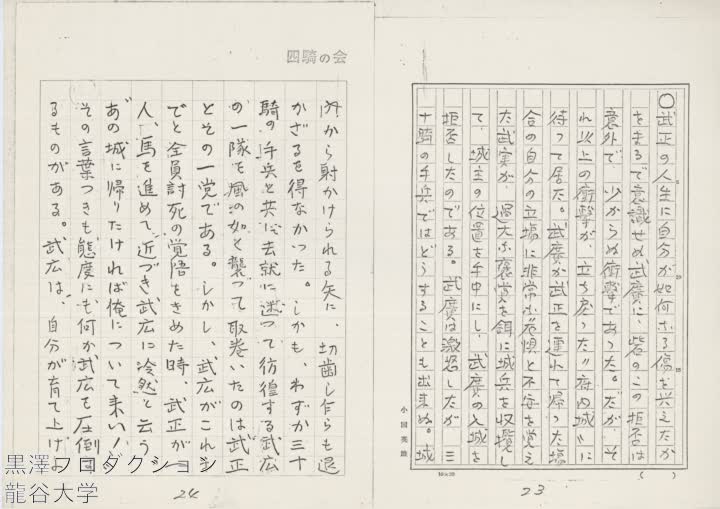 ○武正の人生に自分が如何なる傷を与えたか
をまるで意識せぬ武廣に、砦のこの拒否は
意外で、少からぬ衝撃であった。だが、そ
れ以上の衝撃が、立ち戻った〃府内城〃に
待って居た。武廣が武正を連れて帰った場
合の自分の立場に非常な危惧と不安を覚え
た武実が、過大な褒賞を餌に城兵を収攬し
て、城主の位置を手中にし、武廣の入城を
拒否したのである。武廣は激怒したが、三
十騎の手兵ではどうすることも出来ぬ。城
(　)
小国英雄
23
四騎の会
内から射かけられる矢に、切歯し乍らも退
かざるを得なかった。しかも、わずか三十
騎の手兵と共に去就に迷って彷徨する武広
の一隊を風の如く襲って取巻いたのは武正
とその一党である。しかし、武広がこれま
でと全員討死の覚悟をきめた時、武正が一
人、馬を進めて近づき武広に冷然と云う
あの城に帰りたければ俺について来い！
その言葉つきも態度にも何か武広を圧倒す
るものがある。武広は、自分が育て上げた
24
黒澤プロダクション
龍谷大学